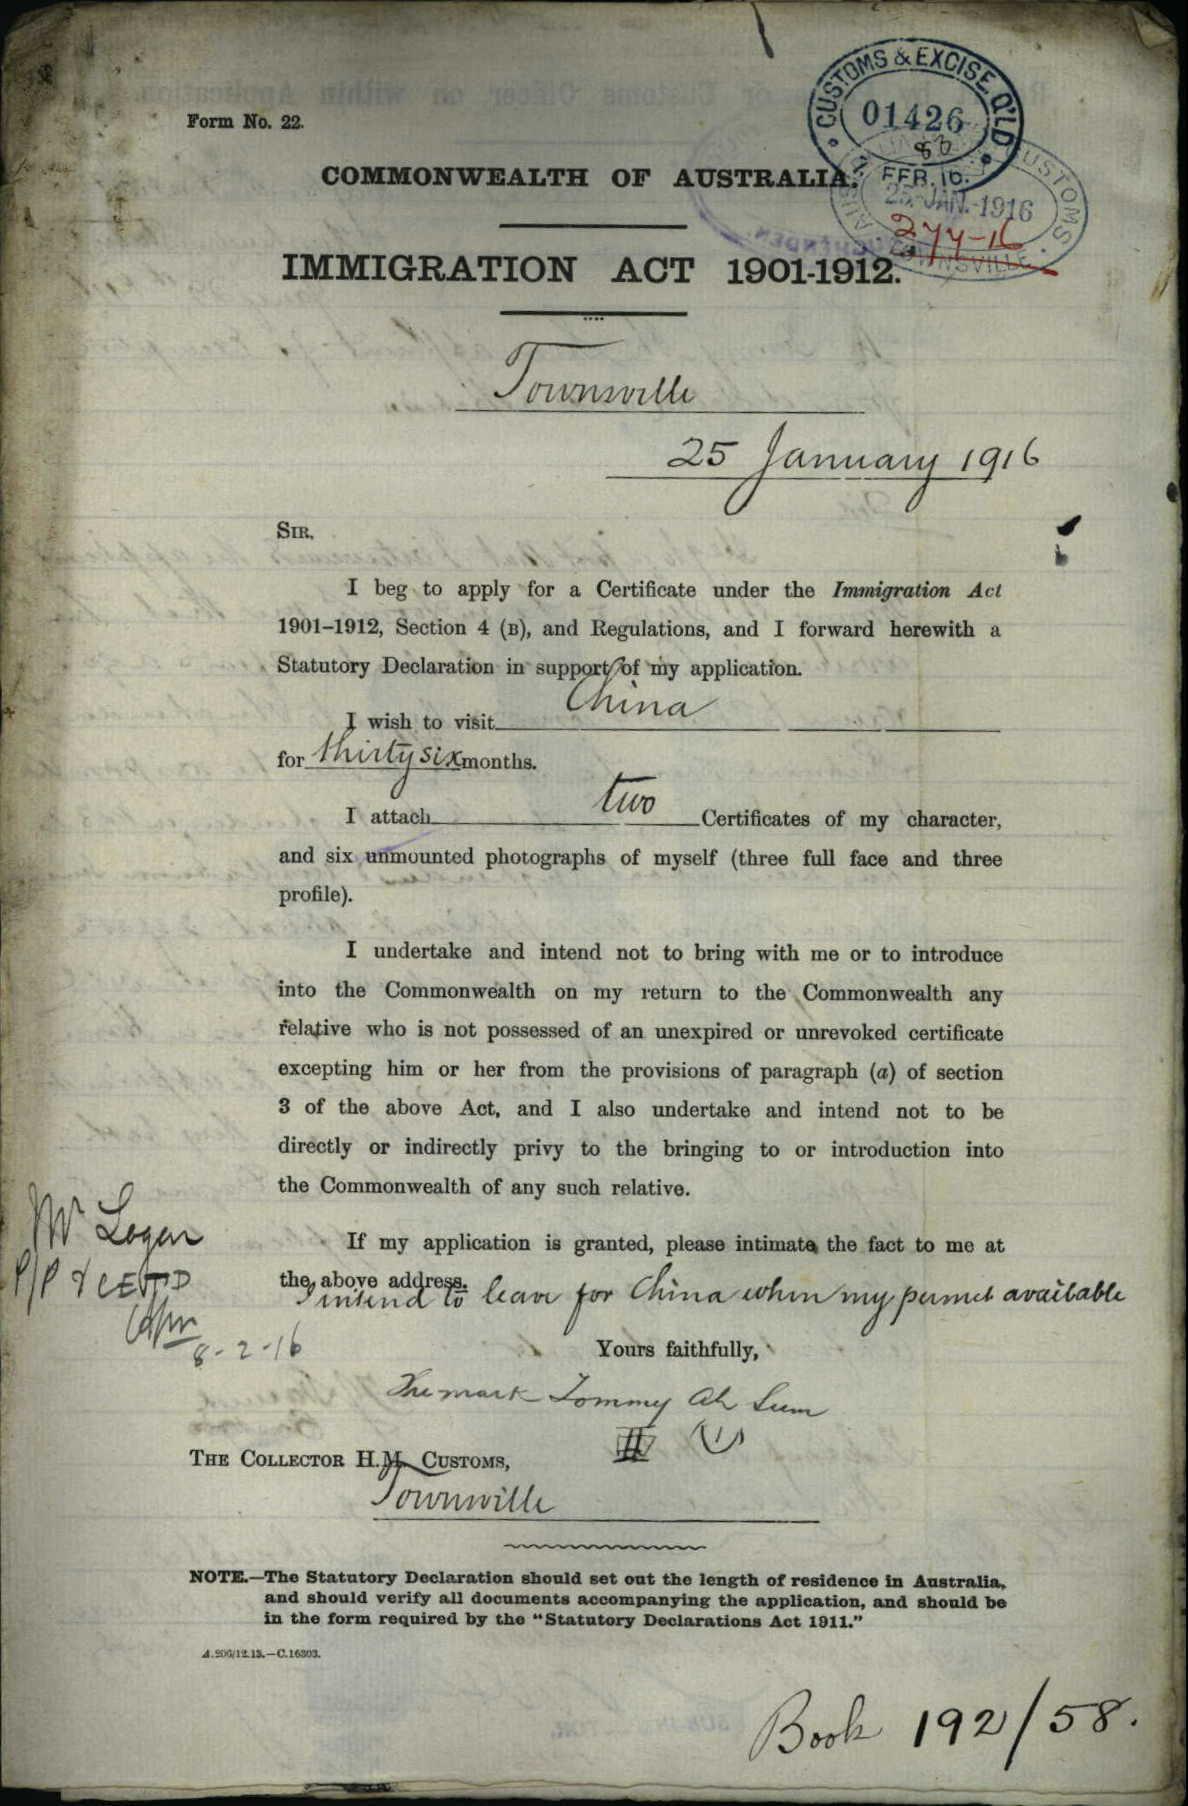 CUSTOMS & EXCISE, Q'LD
01426
FEB. 16.
25. JAN. 1916
CUSTOMS
TOWNSVILLE
277-16
Form No. 22.
COMMONWEALTH OF AUSTRALIA.
IMMIGRATION ACT 1901-1912.
Townsville
25 January 1916
SIR,
I beg to apply for a Certificate under the Immigration Act
1901–1912, Section 4 (B), and Regulations, and I forward herewith a
Statutory Declaration in support of my application.
I wish to visit China
for thirty six months.
I attach two Certificates of my character,
and six unmounted photographs of myself (three full face and three
profile).
I undertake and intend not to bring with me or to introduce
into the Commonwealth on my return to the Commonwealth any
relative who is not possessed of an unexpired or unrevoked certificate
excepting him or her from the provisions of paragraph (a) of section
3 of the above Act, and I also undertake and intend not to be
directly or indirectly privy to the bringing to or introduction into
the Commonwealth of any such relative.
If my application is granted, please intimate the fact to me at
the above address.
I intend to leave for China when my permit available
Mr Logan
P/P & CETD
8-2-16
Yours faithfully,
The mark Tommy Ah Sum
THE COLLECTOR H.M. CUSTOMS,
Townville
NOTE.—The Statutory Declaration should set out the length of residence in Australia,
and should verify all documents accompanying the application, and should be
in the form required by the "Statutory Declarations Act 1911."
A.206/12.15.—C.16303.
Book 192/58.